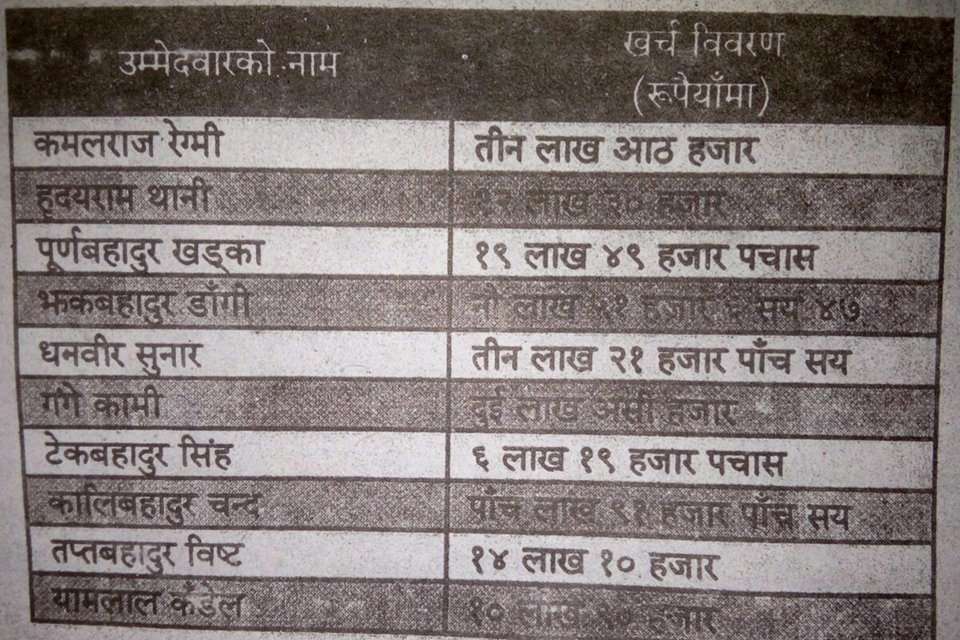 उम्मेदवारको नाम
खर्च विवरण
(रूपैयाँमा)
कमलराज रेग्मी तीन लाख आठ हजार
हृदयराम थानी लाख हजार
पूर्णबहादुर खड्का १९ लाख ४९ हजार पचास
झकबहादुर डाँगी नौ लाख हजार सय ४७
धनवीर सुनार तीन लाख २१ हजार पाँच सय
गंगे कामी दुई लाख असी हजार
टेकबहादुर सिंह ६ लाख १९ हजार पचास
कालिबहादुर चन्द पाँच लाख ९१ हजार पाँच सय
तप्तबहादुर विष्ट १४ लाख १० हजार
यामलाल कँडेल १० लाख हजार